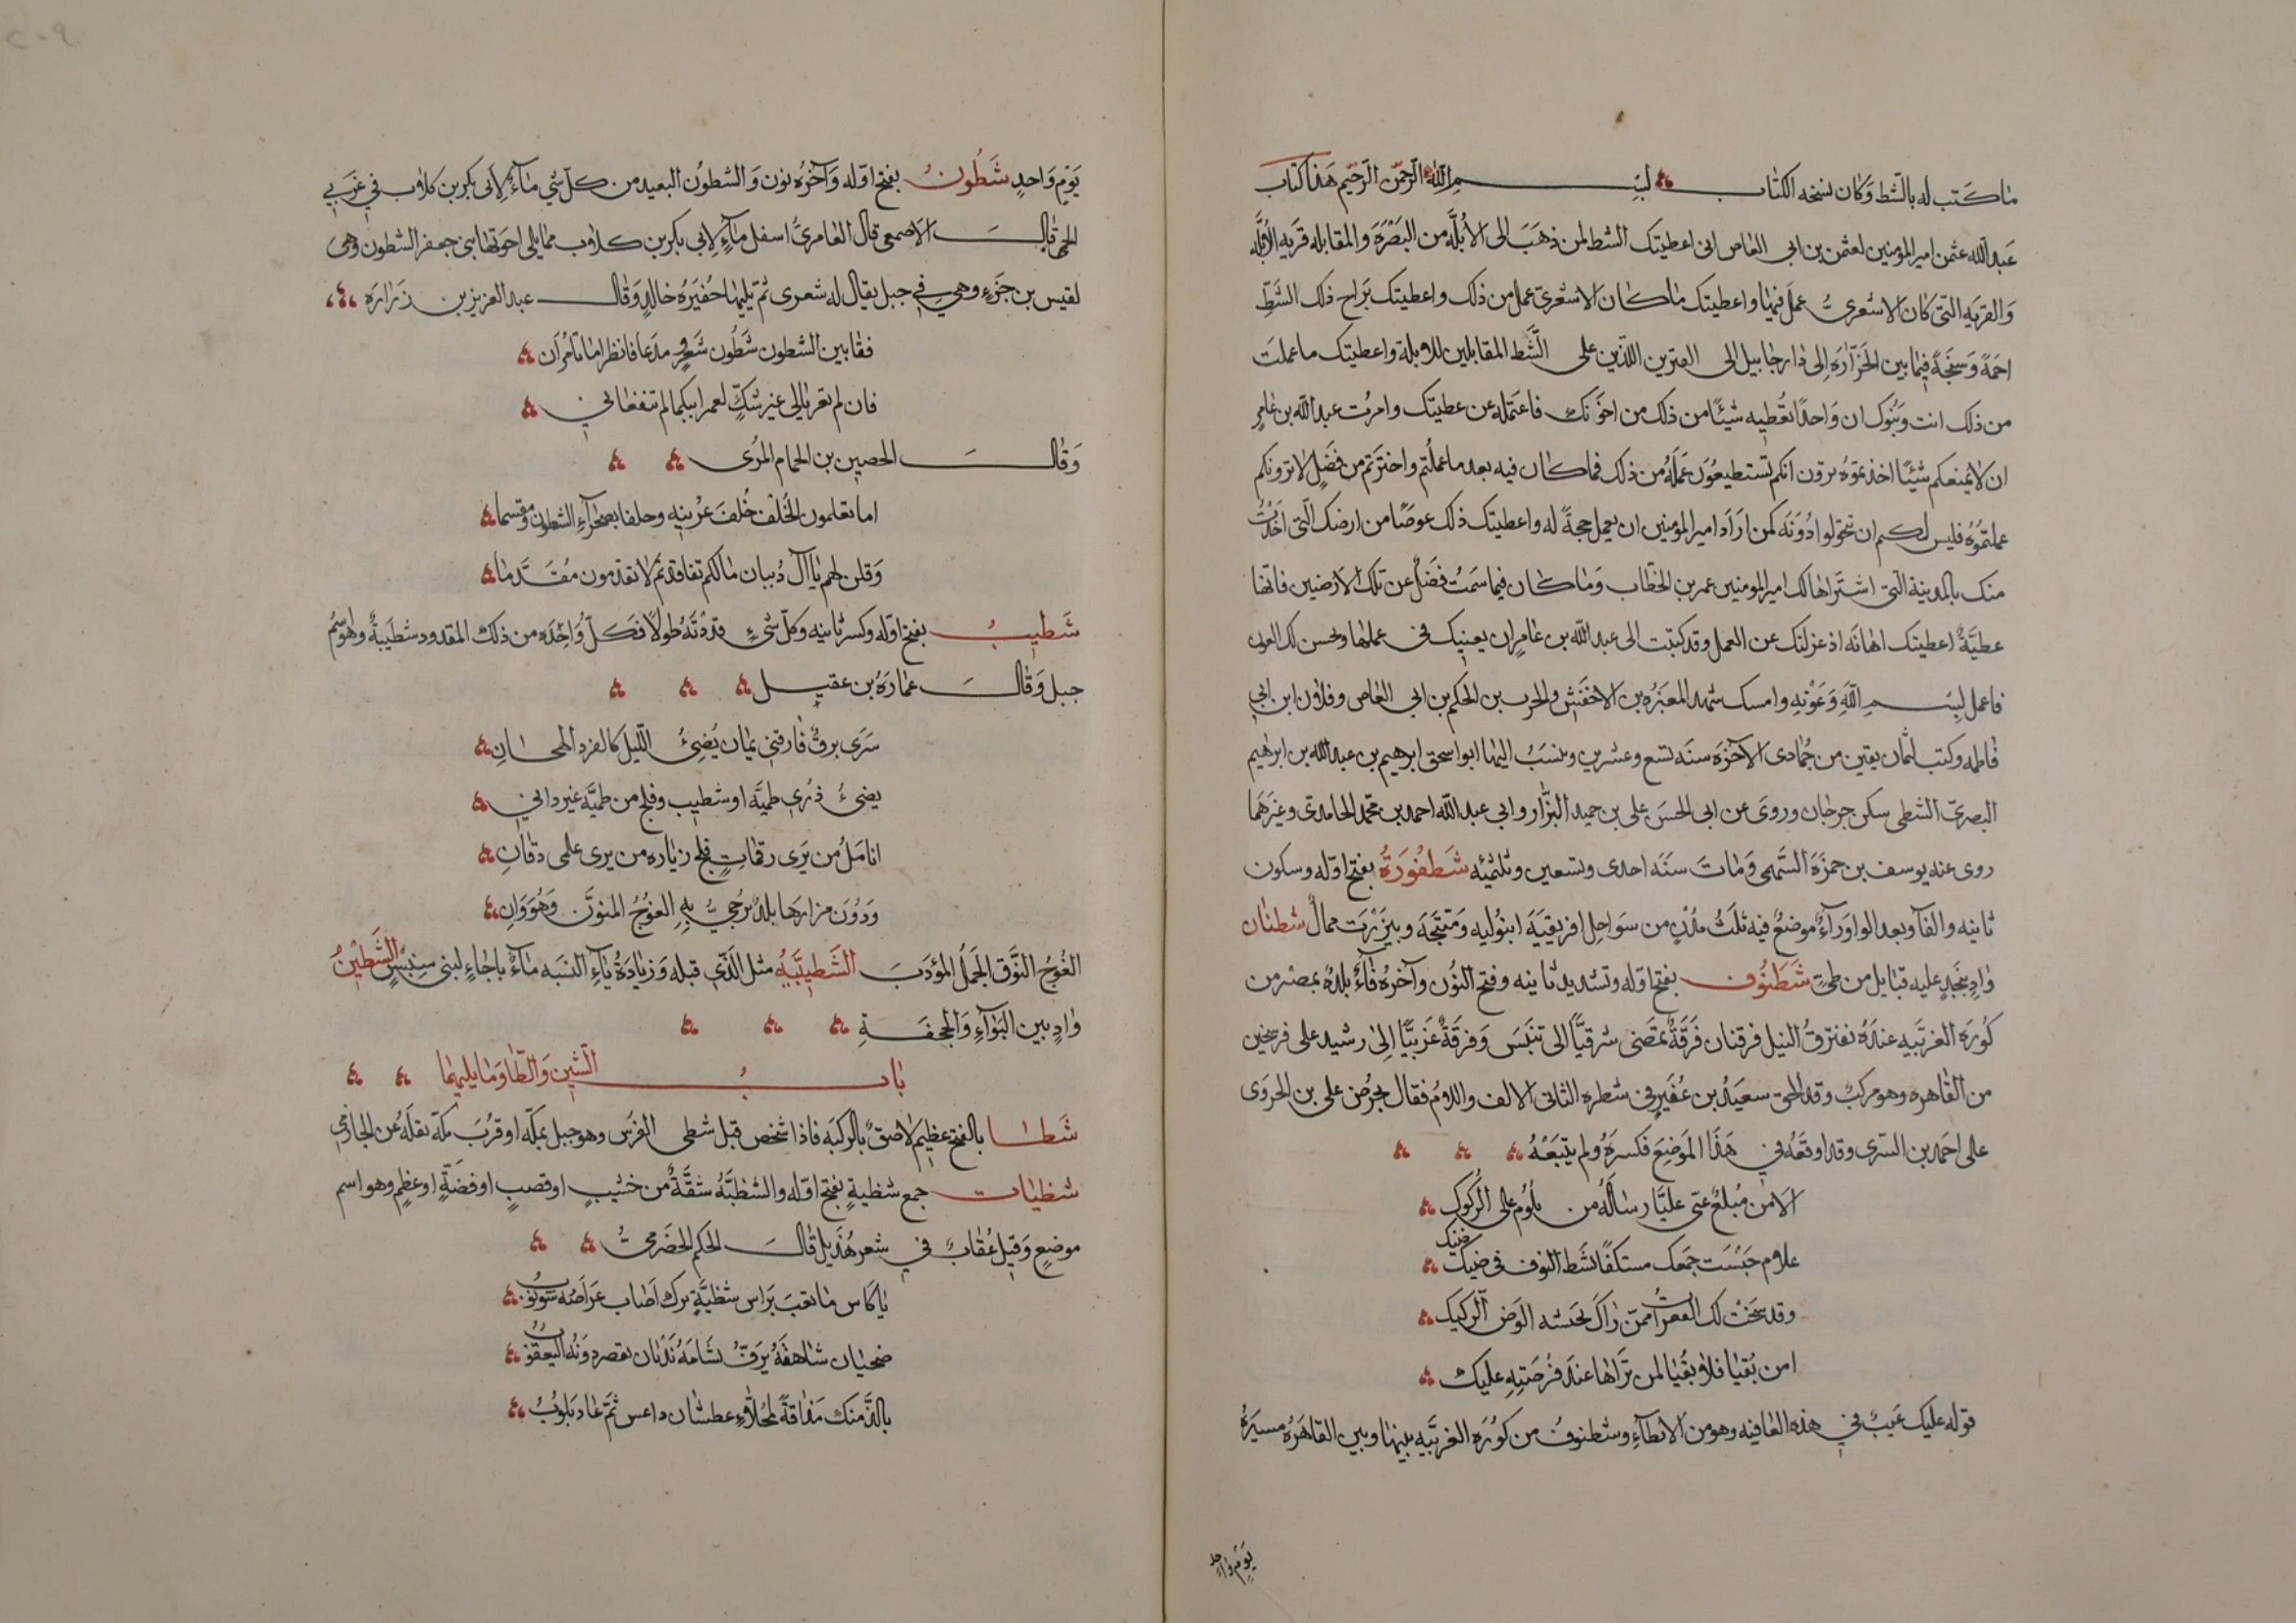 ما كتب له بالشط وكان نسخه الكتاب بسم الله الرحمن الرحيم هذا كتاب
عبد الله عثمن امير المومنين لعثمن بن ابى العاص انى اعطيتك الشط لمن ذهب الى الأبلة من البصرة والمقابله قريه الأبلة
والقريه التى كان الاشعرى عمل فيها واعطيتك ما كان الاشعرى عمل من ذلك واعطيتك براح ذلك الشط
اجمة وسبخة فيما بين الخرارة إلى دار جابيل الى القبرين اللذين على الشط المقابلين للابلة واعطيتك ما عملت
من ذلك انت وبنوك ان واحدا تعطيه شيئا من ذلك من اخوتك فاعتمله عن عطيتك وامرت عبد الله بن عامر
ان لا يمنعكم شيئا اخذتموه ترون انكم تستطيعون عمله من ذلك فما كان فيه بعد ما عملتم واخترتم من فضل لا ترونكم
عملتموه فليس لكم ان تحولوا دونه لمن اراد امير المومنين ان يعمل حجة له واعطيتك ذلك عوضا من ارضك التى اخذت
منك بالمدينة التى اشتراها لك امير المومنين عمر بن الخطاب وما كان فيما سميت فضل عن تلك الارضين فانها
عطية اعطيتك اهانه اذ عزلتك عن العمل وقد كتبت الى عبد الله بن عامر ان يعينك فى عملها ويحسن لك العون
فاعمل بسم الله وعونه وامسك شهد المغيره بن الاخفنش والحرب بن الحكم بن ابى العاص وفلان ابن ابي
فاطمه وكتب لثمان بقين من جمادى الآخرة سنه تسع وعشرين وينسب اليها ابو اسحق ابرهيم بن عبد الله بن ابرهيم
البصرى الشطى سكن جرجان وروى عن ابى الحسن على بن حميد البزار وابي عبد الله احمد بن محمد الحامدى وغيرهما
روى عنه يوسف بن حمزة السهمى ومات سنه احدى وتسعين وثلثمئه شطفورة بفتح اوله وسكون
ثانيه والفآ وبعد الواو رآء موضع فيه ثلث مدن من سواحل افريقيه انبوليه ومتيجه وبيزرت ممال شطنان
واد بنجد عليه قبايل من طى شطنوف بفتح اوله وتشديد ثانيه وفتح النون وآخره فآء بلده بمصر من
كوره الغربيه عنده يفترق النيل فرقتان فرقة تمضى شرقيا الى تنيس وفرقة غربيا إلى رشيد على فرسخين
من القاهره وهو مركب وقد الحق سعيد بن عفير فى شطره الثانى الالف واللام فقال يحرض على بن الجروى
على احمد بن السرى وقد اوقعه فى هذا الموضع فكسره ولم يتبعه
الا من مبلغ عنى عليا رسالة من يلوم على الركوك
علام حبست جمعك مستكفا بشط النوف فى ضيك ضنك
وقد سنحت لك الفقرات ممن راك تحسه الوض الركيك
امن بقيا فلا بقيا لمن تراها عند فرصته عليك
قوله عليك عيب فى هذه القافيه وهو من الابطآء وشطنوف من كوره الغربيه بينها وبين القاهره مسيرة
يوم واحد
يوم واحد شطون بفتح اوله وآخره نون والشطون البعيد من كل شى مآء لابى بكر بن كلاب فى غربي
الحمى قال الاصمعى قال العامرى اسفل مآء لابي بكر بن كلاب مما يلى اخوتها بنى جعفر الشطون وهى
لقيس بن جزء وهي في جبل يقال له شعرى ثم يليها حفيره خالد وقال عبد العزيز بن زراره
فقا بين الشطون شطون شعر ومدعا فانظرا ما تامران
فان لم تعربا لي غير شك لعمر ابيكما لم تنفعاني
وقال الحصين بن الحمام المرى
اما تعلمون الحلف حلف عرينه وحلفا بصحرآء الشطون ومقسما
وقلن لهم يا آل ذبيان مالكم تفاقدتم لا تقدمون مقدما
شطيب بفتح اوله وكسر ثانيه وكل شىء قددته طولا فكل واحده من ذلك المقدود شطيبة وهو اسم
جبل وقال عماره بن عقيل
سرى برق فارقنى يمان يضئ الليل كالفرد الهجان
يضئ ذرى طميه او شطيب وفلج من طميه غير داني
انامل من يرى رقمات فلج زياره من يرى علمى دقان
ودون مزارها بلد يرجى به الغوج المنوق وهو وان
الغوج النوق الجمل المؤدب الشطيبيه مثل الذى قبله وزيادة ياء النسبه مآء باجاء لبنى سنبس الشطين
واد بين البوآء والجحفة
باب الشين والظا وما يليهما
شظا بالفتح عظيم لاصق بالركبه فاذا شخص قيل شظى الفرس وهو جبل بمكه او قرب مكه نقله عن الحازمى
شظيات جمع شظية بفتح اوله والشظيه شقة من خشب او قصب او فضة او عظم وهو اسم
موضع وقيل عقاب في شعر هذيل قال الحكم الخضرمى
يا كاس ما نعب براس شظية برك اصاب عراصه شوبوب
ضحيان شاهقة يرف بشامه نديان تقصر دونه اليعقوب
بالذ منك مذاقة لمحلاء عطشان داعس ثم عاد يلوب